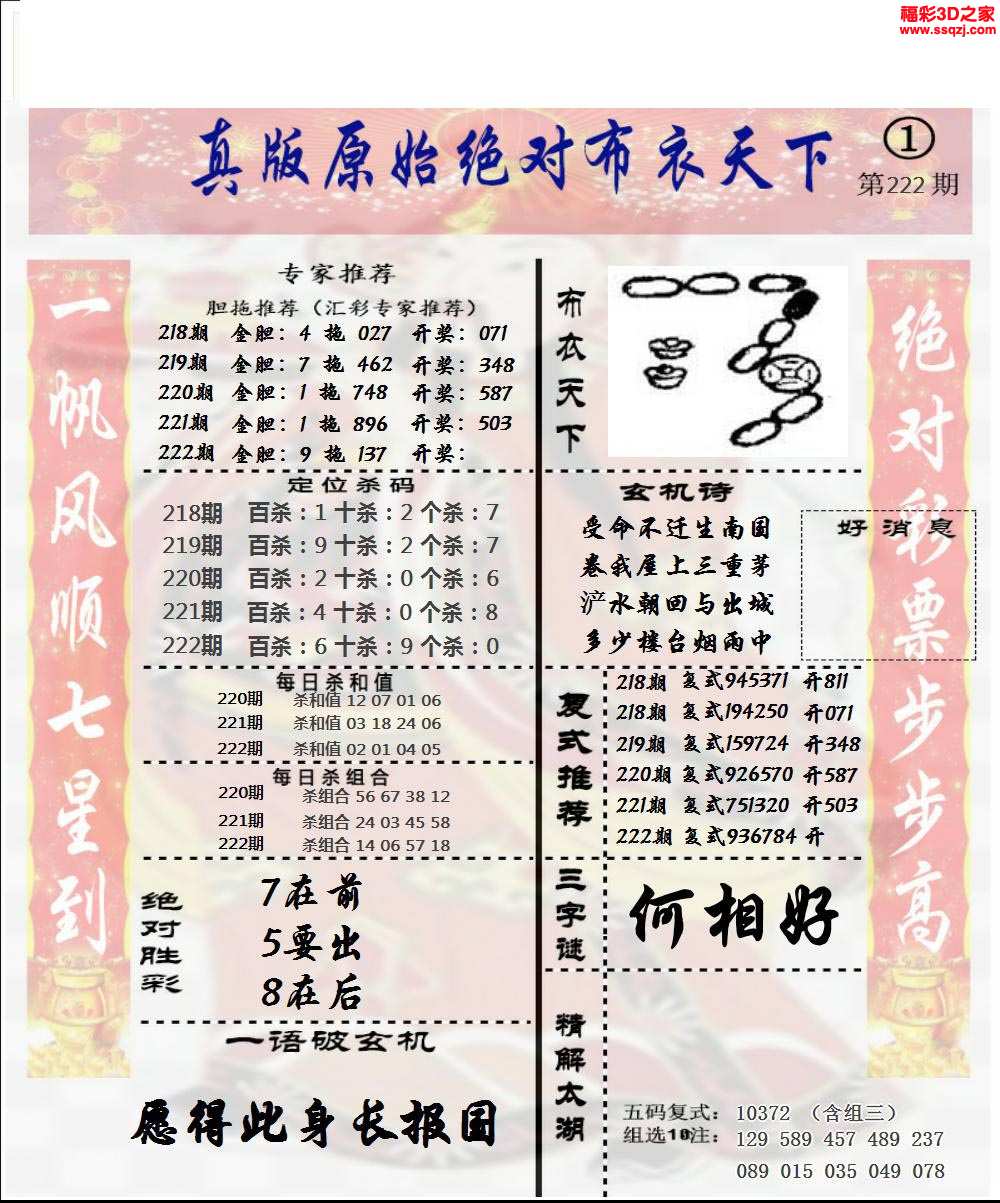 福彩3D之家
www.ssqzj.com
真版原始绝对布衣天下
①
第222期
一帆风顺七星到
专家推荐
胆拖推荐（汇彩专家推荐）
218期 金胆：4 拖 027 开奖：071
219期 金胆：7 拖 462 开奖：348
220期 金胆：1 拖 748 开奖：587
221期 金胆：1 拖 896 开奖：503
222期 金胆：9 拖 137 开奖：
定位杀码
218期 百杀：1 十杀：2 个杀：7
219期 百杀：9 十杀：2 个杀：7
220期 百杀：2 十杀：0 个杀：6
221期 百杀：4 十杀：0 个杀：8
222期 百杀：6 十杀：9 个杀：0
每日杀和值
220期 杀和值 12 07 01 06
221期 杀和值 03 18 24 06
222期 杀和值 02 01 04 05
每日杀组合
220期 杀组合 56 67 38 12
221期 杀组合 24 03 45 58
222期 杀组合 14 06 57 18
绝对胜彩
7在前
5要出
8在后
一语破玄机
愿得此身长报国
布衣天下
玄机诗
受命不迁生南国
卷我屋上三重茅
浐水朝回与出城
多少楼台烟雨中
好消息
复式推荐
218期 复式945371 开811
218期 复式194250 开071
219期 复式159724 开348
220期 复式926570 开587
221期 复式751320 开503
222期 复式936784 开
三字谜
何相好
精解太湖
五码复式：10372 （含组三）
组选10注：129 589 457 489 237
089 015 035 049 078
绝对彩票步步高